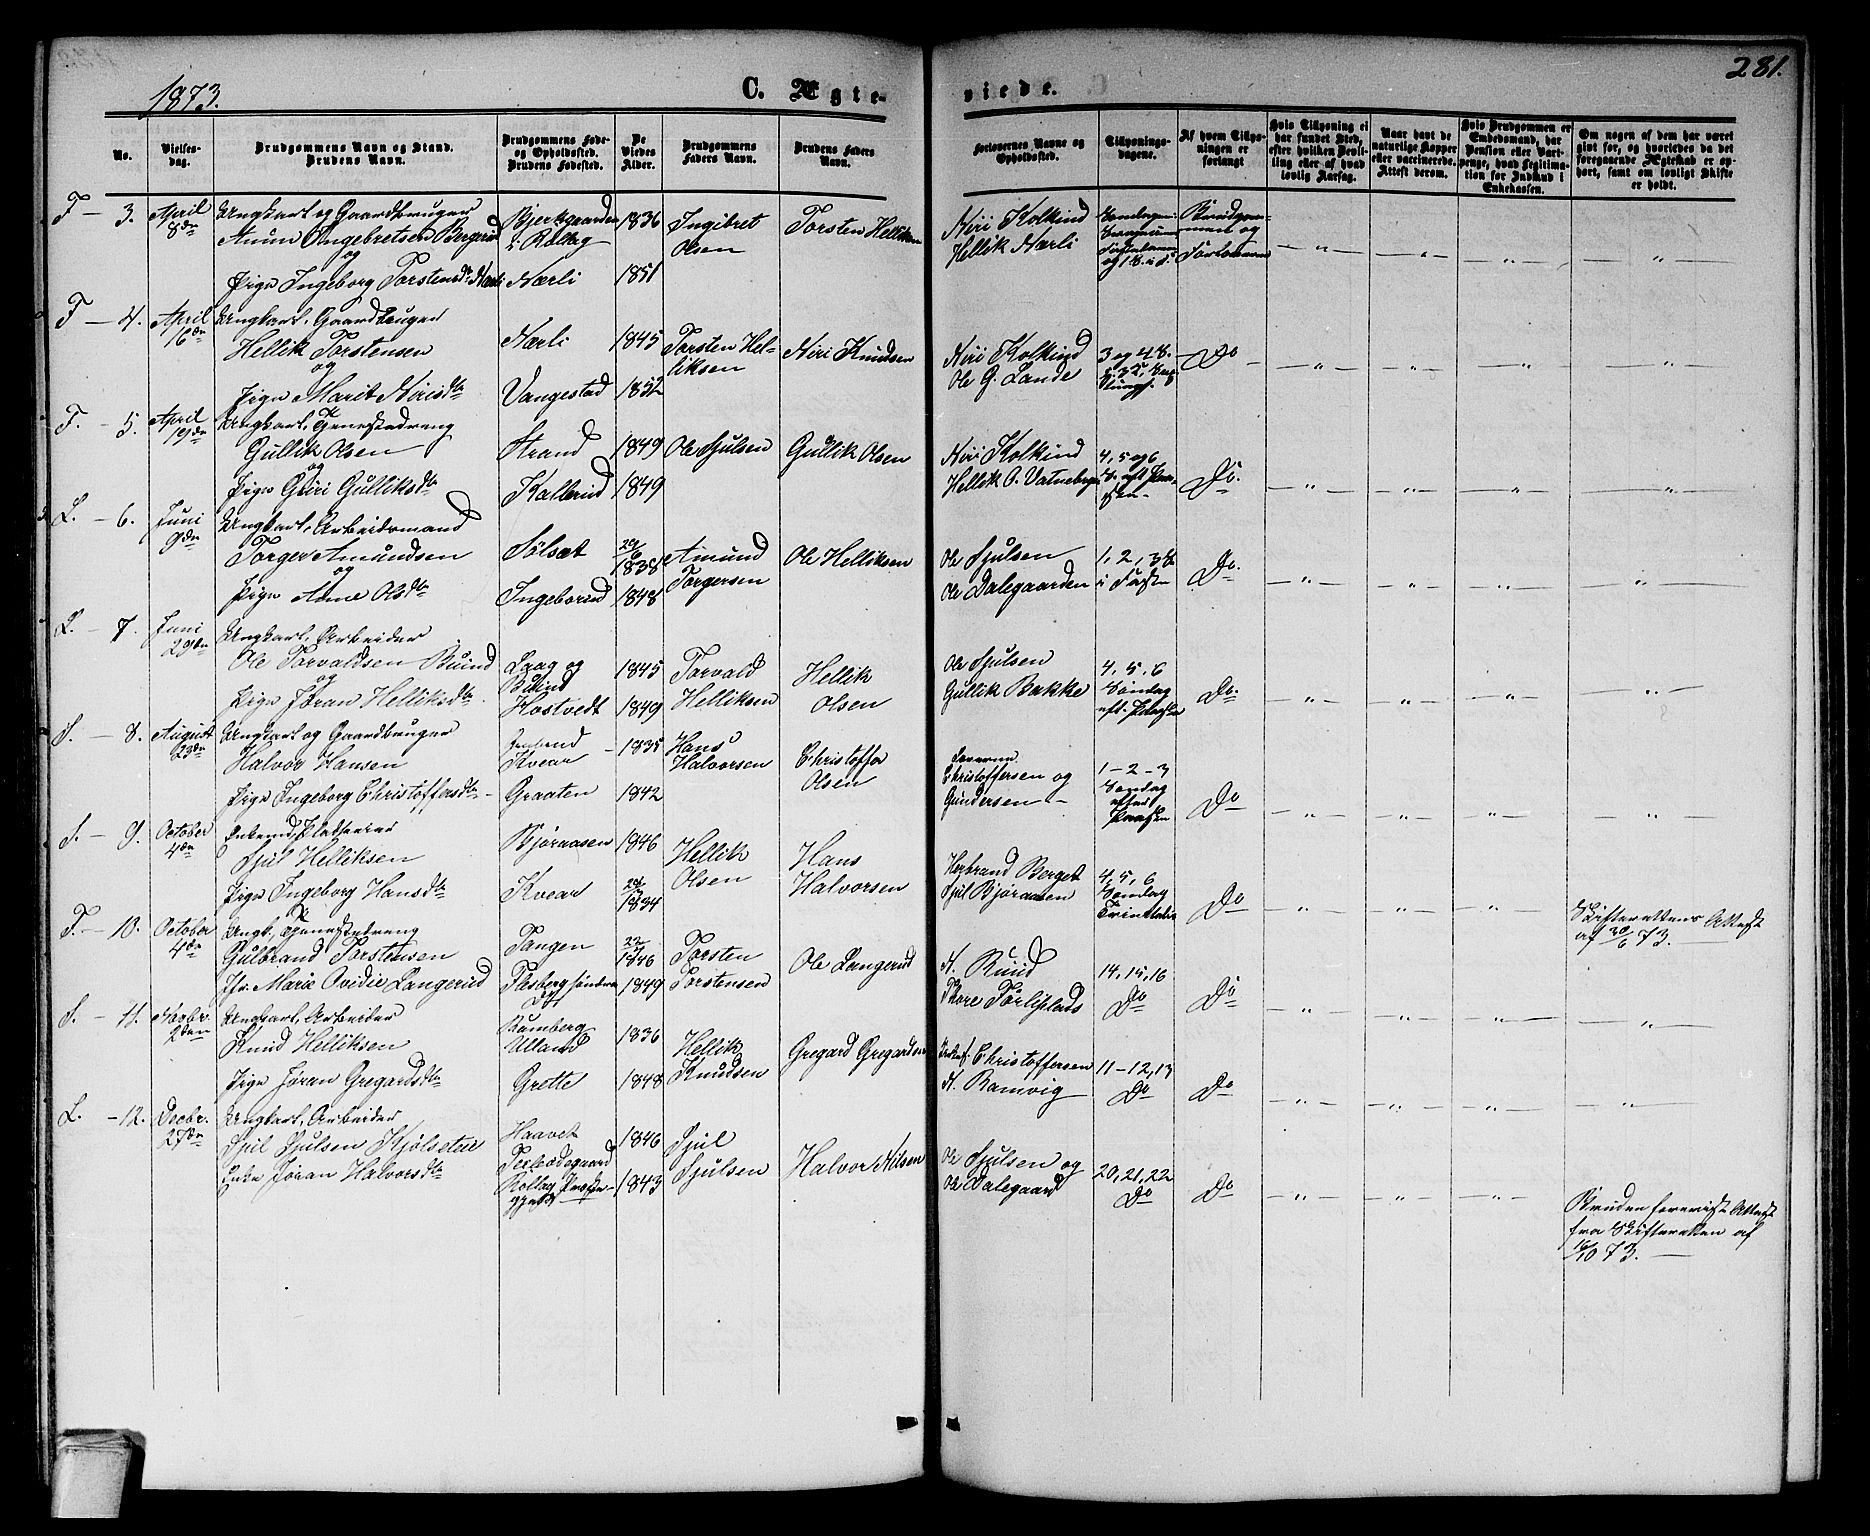 1873.
C. Ægteviede.
281.
No.
Vielsesdag.
Brudgommens Navn og Stand.
Brudens Navn.
Brudgommens Føde-
og Opholdssted.
Brudens Fødested.
De
Viedes
Alder.
Brudgommens
Faders Navn.
Brudens Faders
Navn.
Forlovernes Navne og
Opholdssted.
Tillysnings-
dagene.
Af hvem Tillys-
ningen er
forlangt
Hvis Tillysning ei
har fundet Sted,
efter hvilken Bevil-
ling eller af hvad
lovlig Aarsag.
Naar havt de
naturlige Kopper
eller vaccinerede.
Attest derom.
Hvis Brudgommen er
Embedsmand, har
Pension eller Vart-
penge, hvad Legitima-
tion for Indskud i
Enkekassen.
Om nogen af dem har været
givt før, og hvorledes da det
foregaaende Ægteskab er op-
hørt, samt om lovligt Skifte
er holdt.
F - 3. April 8de Ungkarl og Gaardbruger
Anun Ingebretsen Bergerud
og
Pige Ingeborg Torstensdtr Nærli
Bjerkgaarden
i Rollag
Nærli
1836
1851
Ingibret
Olsen
Torsten Helliksen
Niri Kolkind
Hellik Nærli
Brudgom-
men og
Forloverne
F - 4. April 16de Ungkarl, Gaardbruger
Hellik Torstensen
og
Pige Marit Nirisdtr
Nærli
Vangestad
1845
1852
Torsten Hel-
liksen
Niri Knudsen
Niri Kolkind
Ole G. Lande
3 og 4 S.
Do
F. - 5. April 19de Ungkarl, Tjenestedreng
Gullik Olsen
og
Pige Guri Gulliksdtr
Strand
Kallerud
1849
1849
Ole Sjulsen
Gullik Olsen
Niri Kolkind
Hellik O. Vatneberg
4, 5 og 6
S. eft Paa-
sken
Do.
L. - 6. Juni 9de Ungkarl, Arbeidsmand
Torger Amundsen
og
Pige Anne Olsdtr
Sølsæt
Ingeborud
29/6 1838
1848
Amund
Torgersen
Ole Helliksen
Ole Sjulsen
Ole Dalegaarden
1, 2, 3 S.
i Faste
Do.
L. - 7. Juni 29de Ungkarl, Arbeider
Ole Torvaldsen Buind
og
Pige Jøran Helliksdtr
Laag og
Buind
Kostvedt
1845
1849
Torvald
Helliksen
Hellik
Olsen
Ole Sjulsen
Gullik Bakke
4, 5, 6
Søndag
eft. Paasken
Do.
S. - 8. August 23de Ungkarl og Gaardbruger
Halvor Hansen
Pige Ingeborg Christoffersdtr
Kvear
Graaten
1835
1842
Hans
Halvorsen
Christoffer
Olsen
Christoffersen og
Gundersen
1 - 2 - 3
Søndag
efter
Paasken
Do
S. - 9. October 4de Enkemand, Pladseier
Sjul Helliksen
Pige Ingeborg Hansdtr
Bjøraasen
Kvear
1846
1834
Hellik
Olsen
Hans
Halvorsen
Herbrand Berget
Sjul Bjøraasen
4, 5, 6
Søndag
Trinitatis
Do
Skifterettens Attest
af 30/6 73.
F. - 10. October 4de Ungk., Tjenestedreng
Gulbrand Torstensen
Jfr. Marie Ovidie Langerud
Tangen
Flesberg søndre
1846
1849
Torsten
Torstensen
Ole Langerud
N. Ruud
Thore Torliplads
14, 15, 16
Do
Do
S. - 11. Novbr. 2den Ungkarl, Arbeider
Knud Helliksen
Pige Jøran Gregardsdtr
Rumberg
Ulland
Grette
1836
1848
Hellik
Knudsen
Gregard Gregardsen
Christoffersen
N. Ramvig
11 - 12, 13
Do
Do
L. - 12. Decbr. 27de Ungkarl, Arbeider
Sjul Sjulsen Kjølsetue
Enke Jøran Halvorsdtr
Haavet
Rollag Præste-
gjeld
1846
1843
Sjul
Sjulsen
Halvor Nilsen
Ole Sjulsen og
Ole Dalegaard
20, 21, 22
Do
Do
Bruden foreviste Attest
fra Skifteretten af
16/10 73.